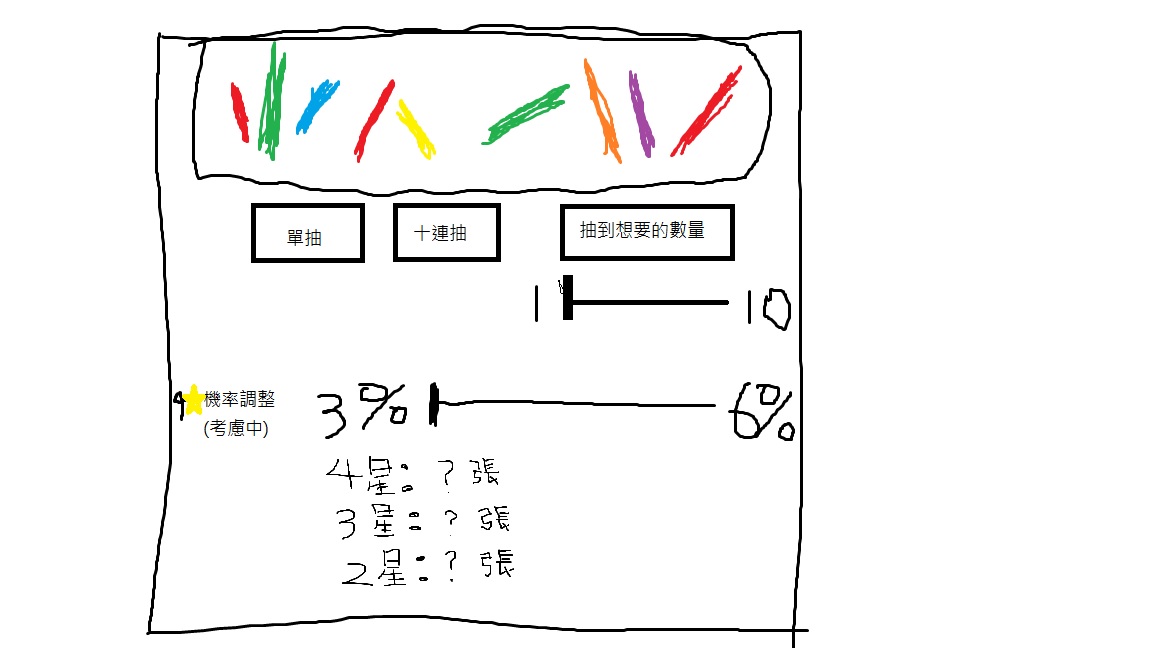 單抽
十連抽
抽到想要的數量
1
10
4
機率調整
(考慮中)
3%
6%
4星:?張
3星:?張
2星:?張